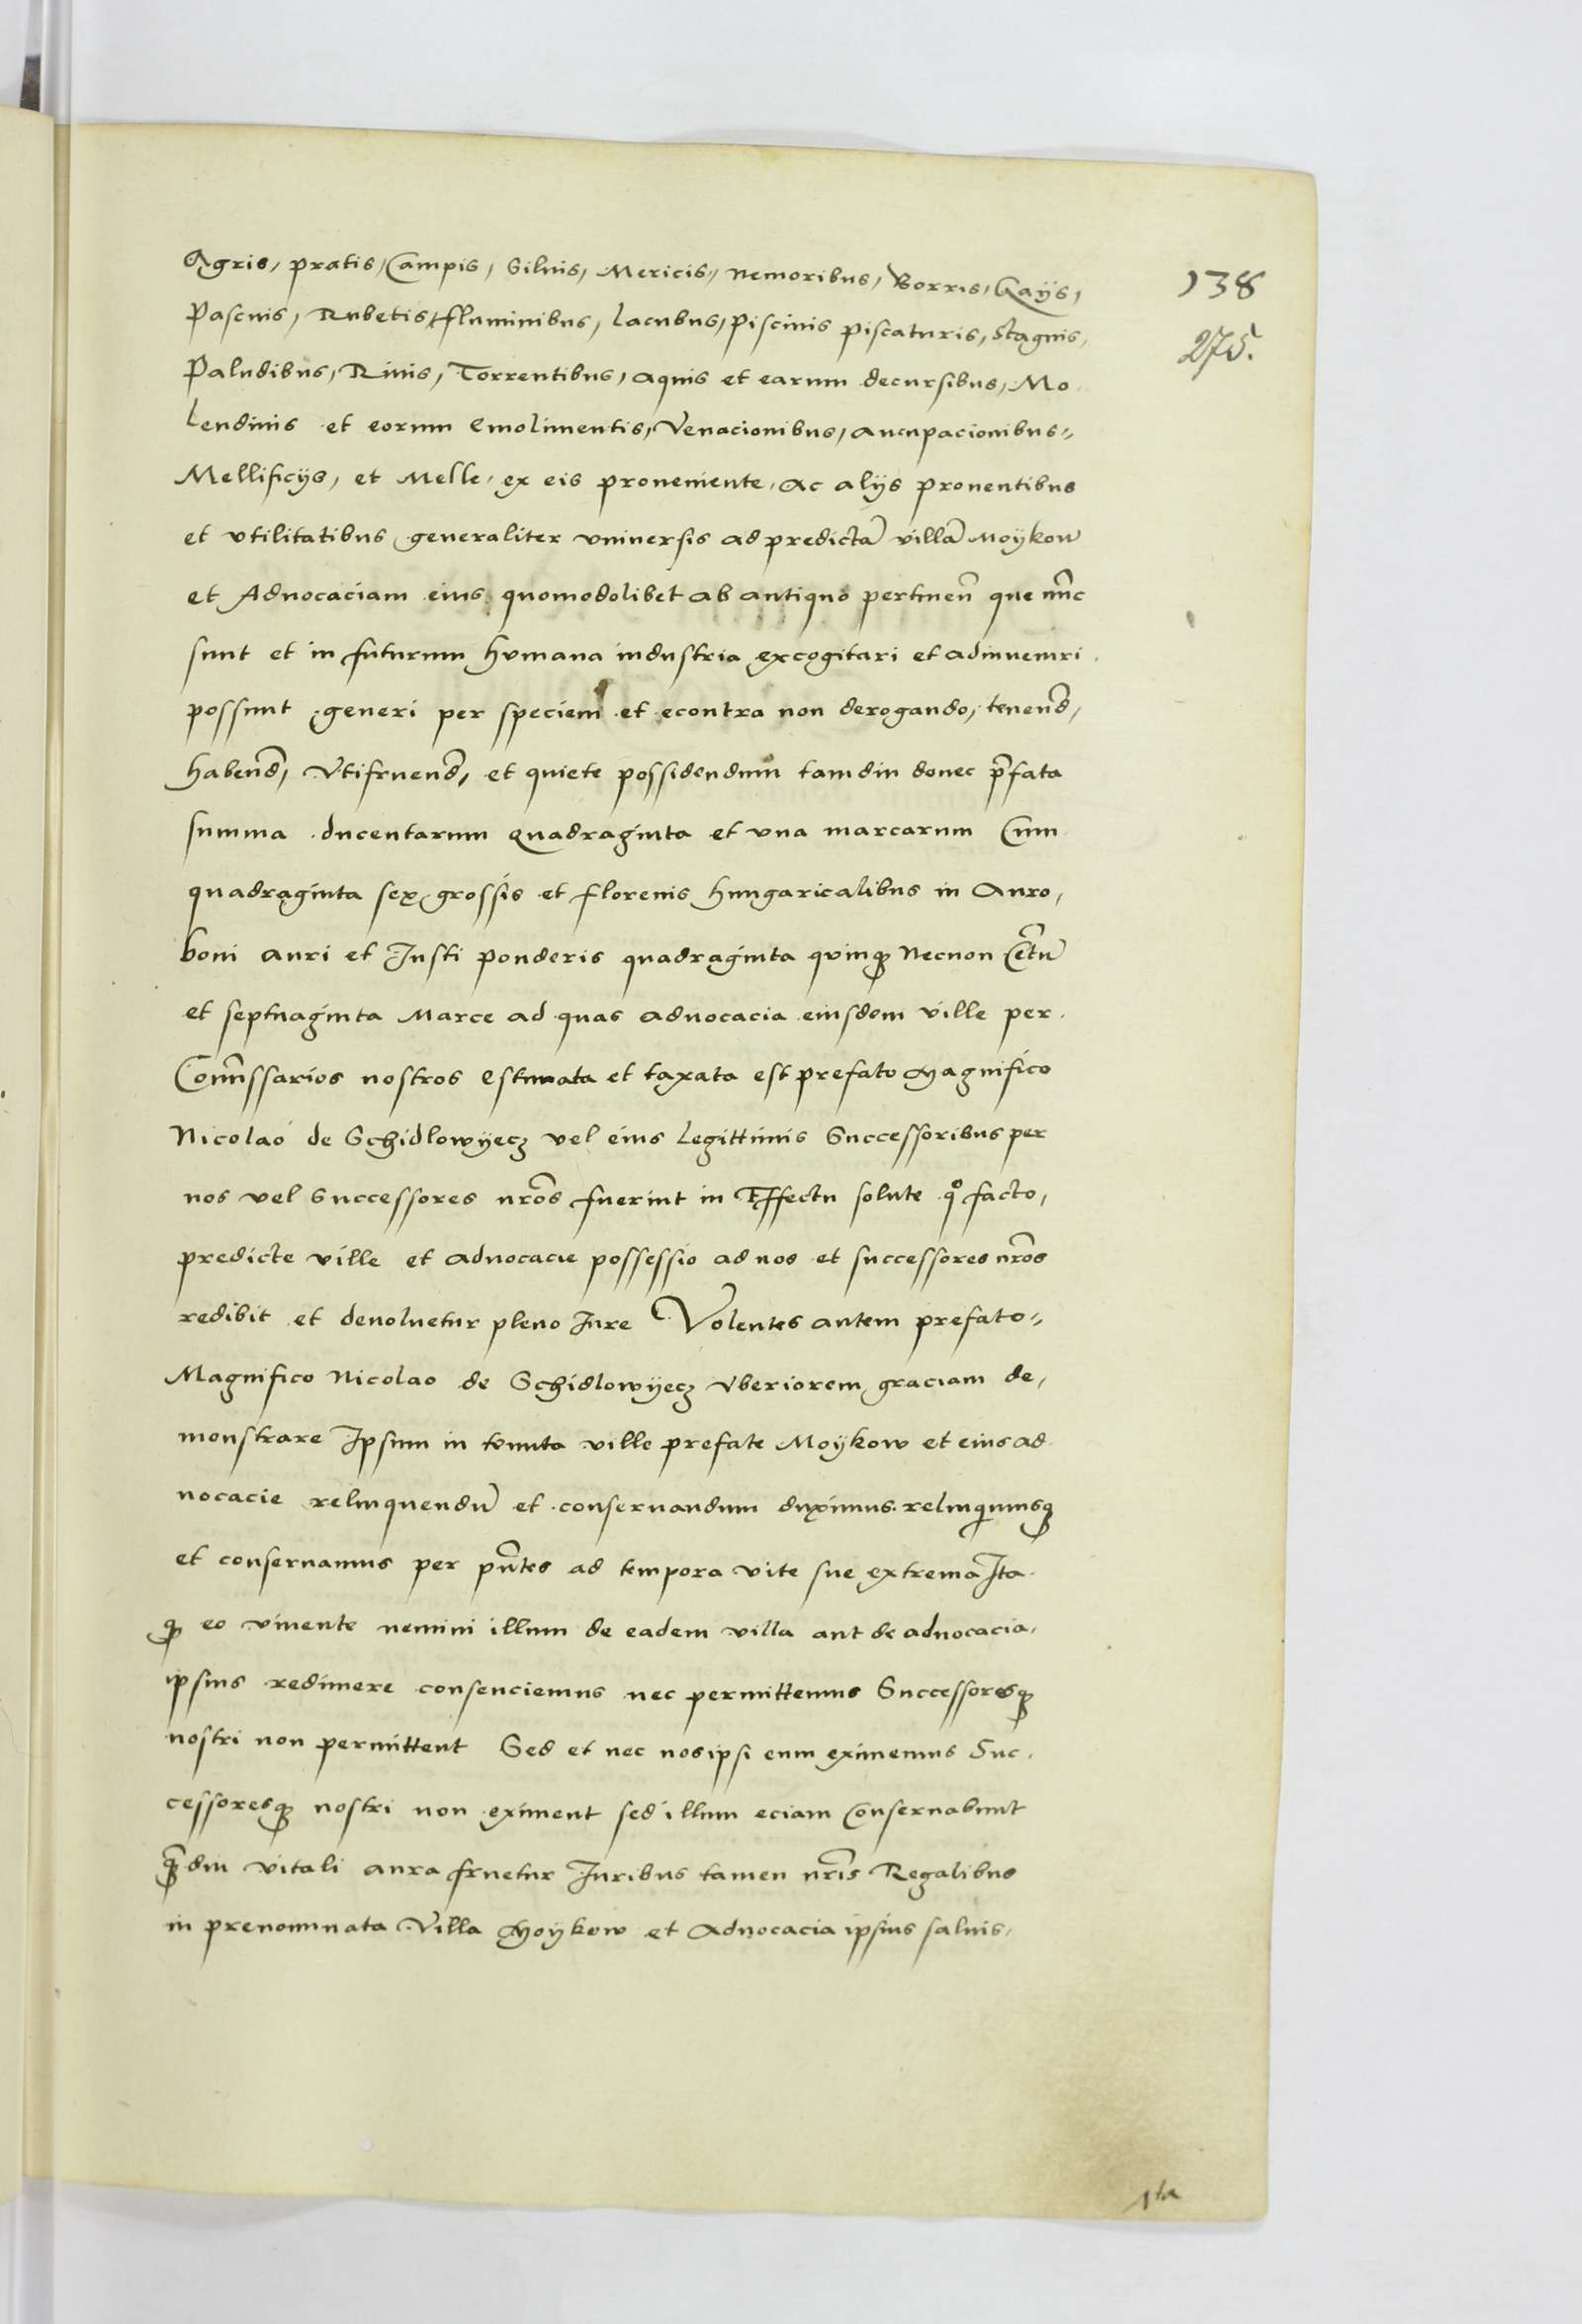 Agris, pratis, Campis, Siluis, Mericis, Nemoribus, Borris, Gays,
Pascuis, Rubetis, fluminibus, lacubus, piscinis piscaturis, Stagnis,
Paludibus, Riuis, Torrentibus, aquis et earum decursibus, Mo
lendinis et eorum emolimentis, Venacionibus, aucupacionibus,
Mellificijs, et Melle, ex eis proueniente, ac alijs prouentibus
et vtilitatibus generaliter vniuersis ad predictā villā Moÿkow
et Aduocaciam eius quomodolibet ab antiquo pertineñ que nūnc
sunt et in futurum humana industria excogitari et adinueniri
possunt generi per speciem et econtra non derogando, tenend,
habend, Vtifruend, et quiete possidendum tamdiu donec p̄fata
summa ducentarum quadraginta et vna marcarum Cum
quadraginta sex grossis et florenis hungaricalibus in Auro,
boni auri et Justi ponderis quadraginta quinq3 Necnon Centū
et septuaginta Marce ad quas aduocacia eiusdem ville per
Com̄issarios nostros estimata et taxata est prefato Magnifico
Nicolao de Schidlowÿecz vel eius Legittimis Successoribus per
nos vel Successores nr̄os fuerint in Effectu solute qº facto,
predicte ville et aduocacie possessio ad nos et successores nr̄os
redibit et deuoluetur pleno Jure Volentes autem prefato
Magnifico Nicolao de Schidlowÿecz vberiorem graciam de,
monstrare Ipsum in tenuta ville prefate Moÿkow et eius ad
uocacie relinquendū et conseruandum duximus relinquimusq3
et conseruamus per pn̄tes ad tempora vite sue extrema Ita
q3 eo viuente nemini illum de eadem villa aut de aduocacia,
ipsius redimere consenciemus nec permittemus Successoresq3
nostri non permittent Sed et nec nos ipsi eum eximemus Suc
cessoresq3 nostri non eximent sed illum eciam Conseruabunt
q̄diu vitali aura fruetur Juribus tamen nr̄is Regalibus
in prenominata Villa Moÿkow et Aduocacia ipsius saluis,
138
275.